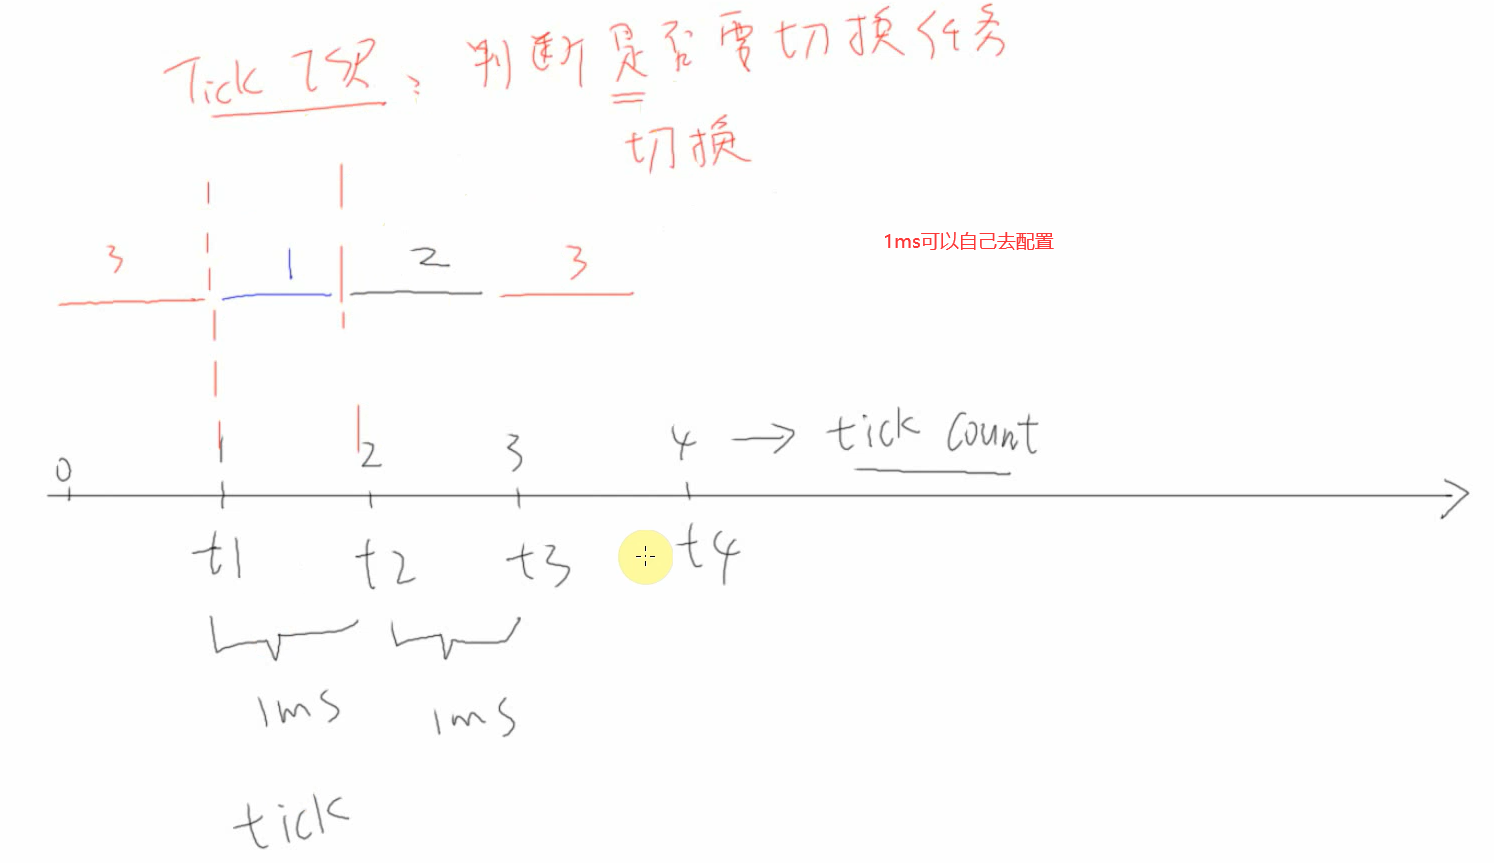 Tick ISR: 判断是否要切换任务
切换
1ms可以自己去配置
3 1 2 3
0 1 2 3 4 → tick count
t1 t2 t3 t4
1ms 1ms
tick